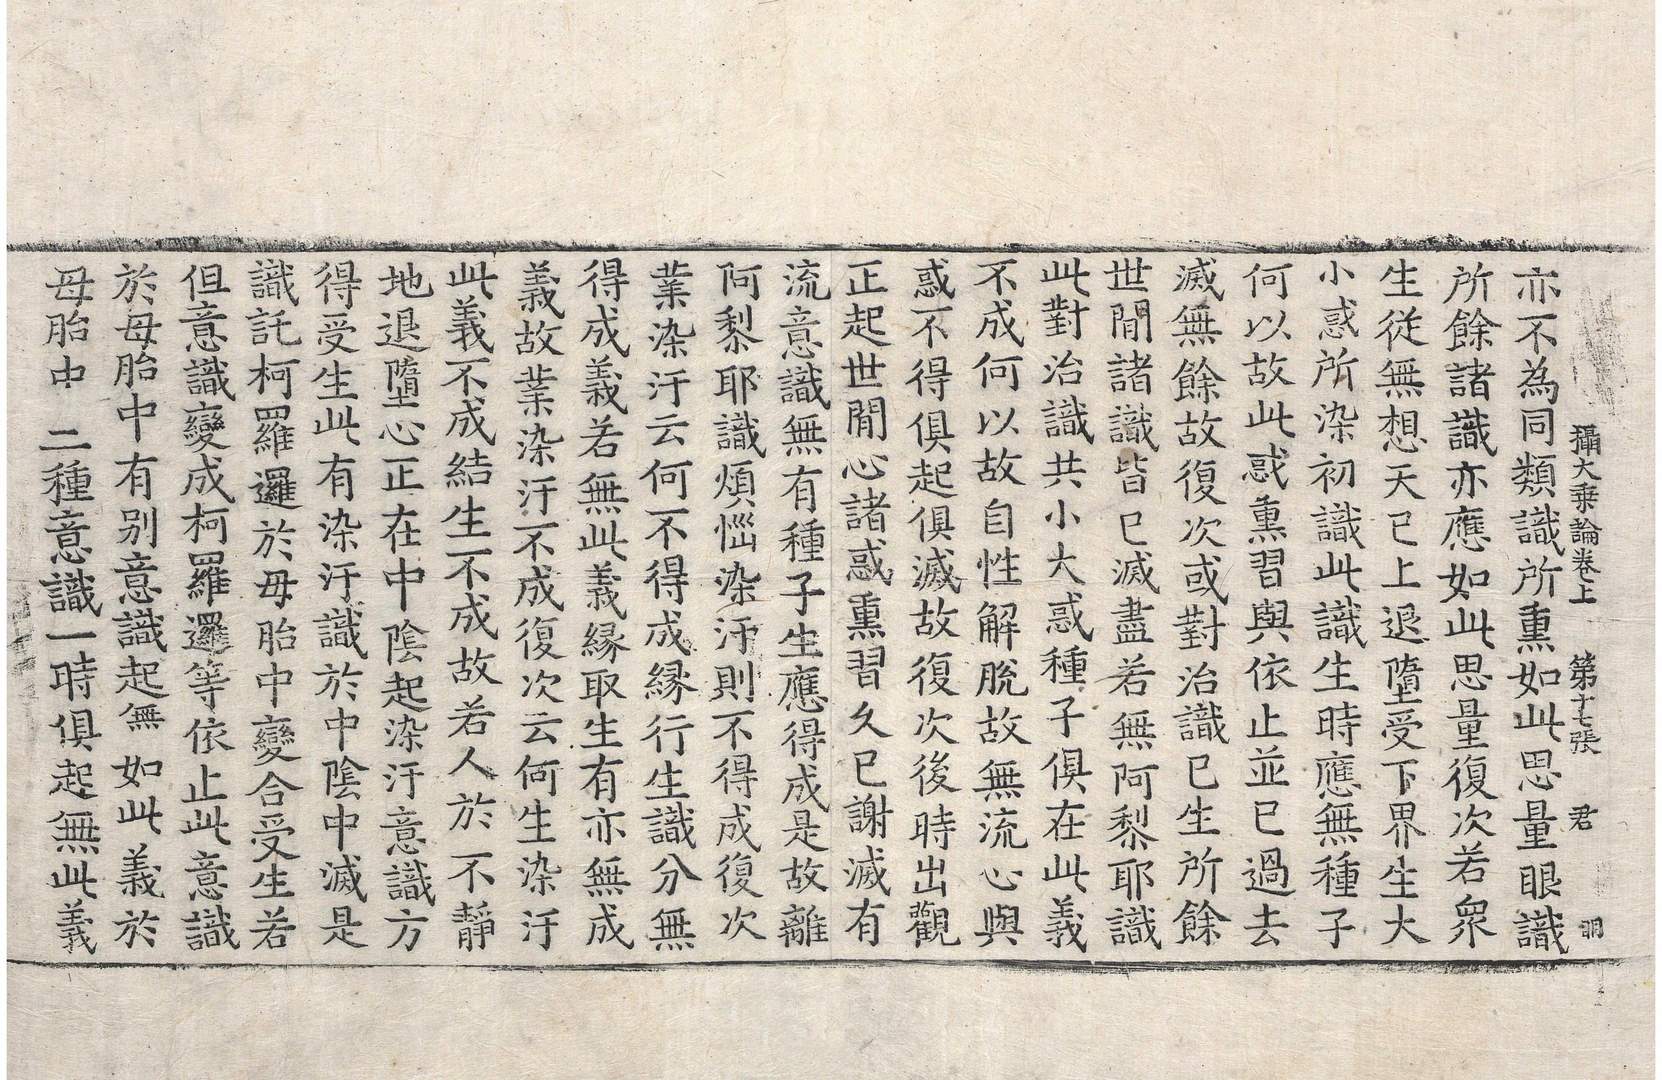 攝大乗論卷上 第十七張 君
亦不為同類識所熏如此思量眼識
所餘諸識亦應如此思量復次若衆
生從無想天已上退墮受下界生大
小惑所染初識此識生時應無種子
何以故此惑熏習與依止並已過去
滅無餘故復次或對治識已生所餘
世間諸識皆已滅盡若無阿黎耶識
此對治識共小大惑種子俱在此義
不成何以故自性解脫故無流心與
惑不得俱起俱滅故復次後時出觀
正起世間心諸惑熏習久已謝滅有
流意識無有種子生應得成是故離
阿黎耶識煩惱染汙則不得成復次
業染汙云何不得成緣行生識分無
得成義若無此義緣取生有亦無成
義故業染汙不成復次云何生染汙
此義不成結生不成故若人於不靜
地退墮心正在中陰起染汙意識方
得受生此有染汙識於中陰中滅是
識託柯羅邏於母胎中變合受生若
但意識變成柯羅邏等依止此意識
於母胎中有別意識起無如此義於
母胎中二種意識一時俱起無此義